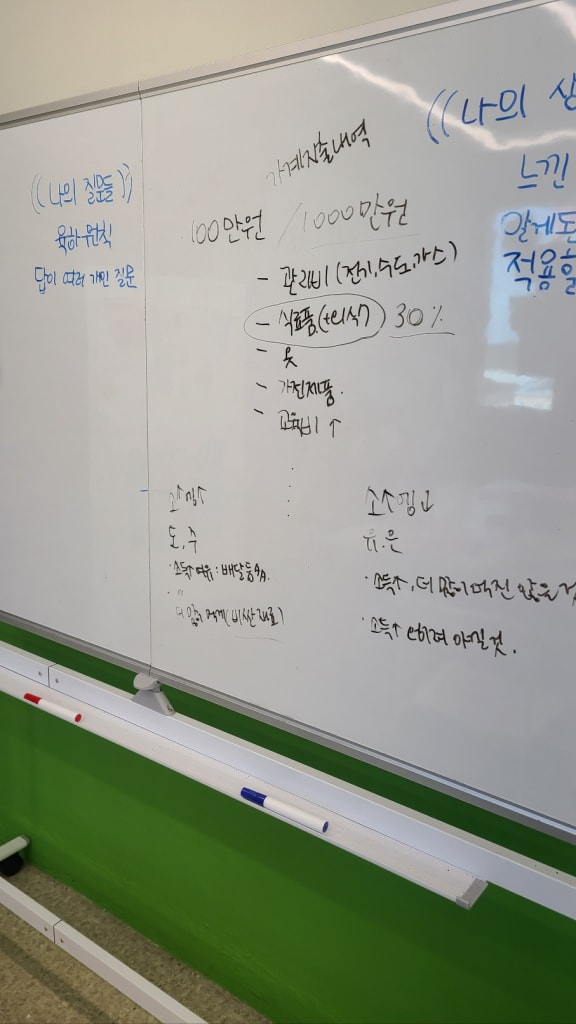 ((나의 질문들))
육하원칙
답이 여러 개인 질문
가계지출내역
100만원 / 1000만원
- 관리비 (전기, 수도, 가스)
- 식료품(+외식) 30%
- 옷
- 가전제품.
- 교육비 ↑
소↑엥↑
도, 주
· 소득↑ 여유 : 배달음식.
· "
더 많이 먹게 (비싼 재료)
소↑엥↓
유, 은
· 소득↑, 더 많이 먹진 않을 것
· 소득↑ 오히려 아낄것.
((나의 생
느낀
알게된
적용할